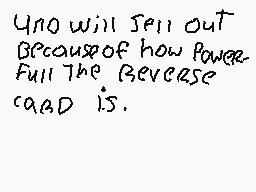 uno will sell out
Because of how Power-
Full The Reverse
CARD is.